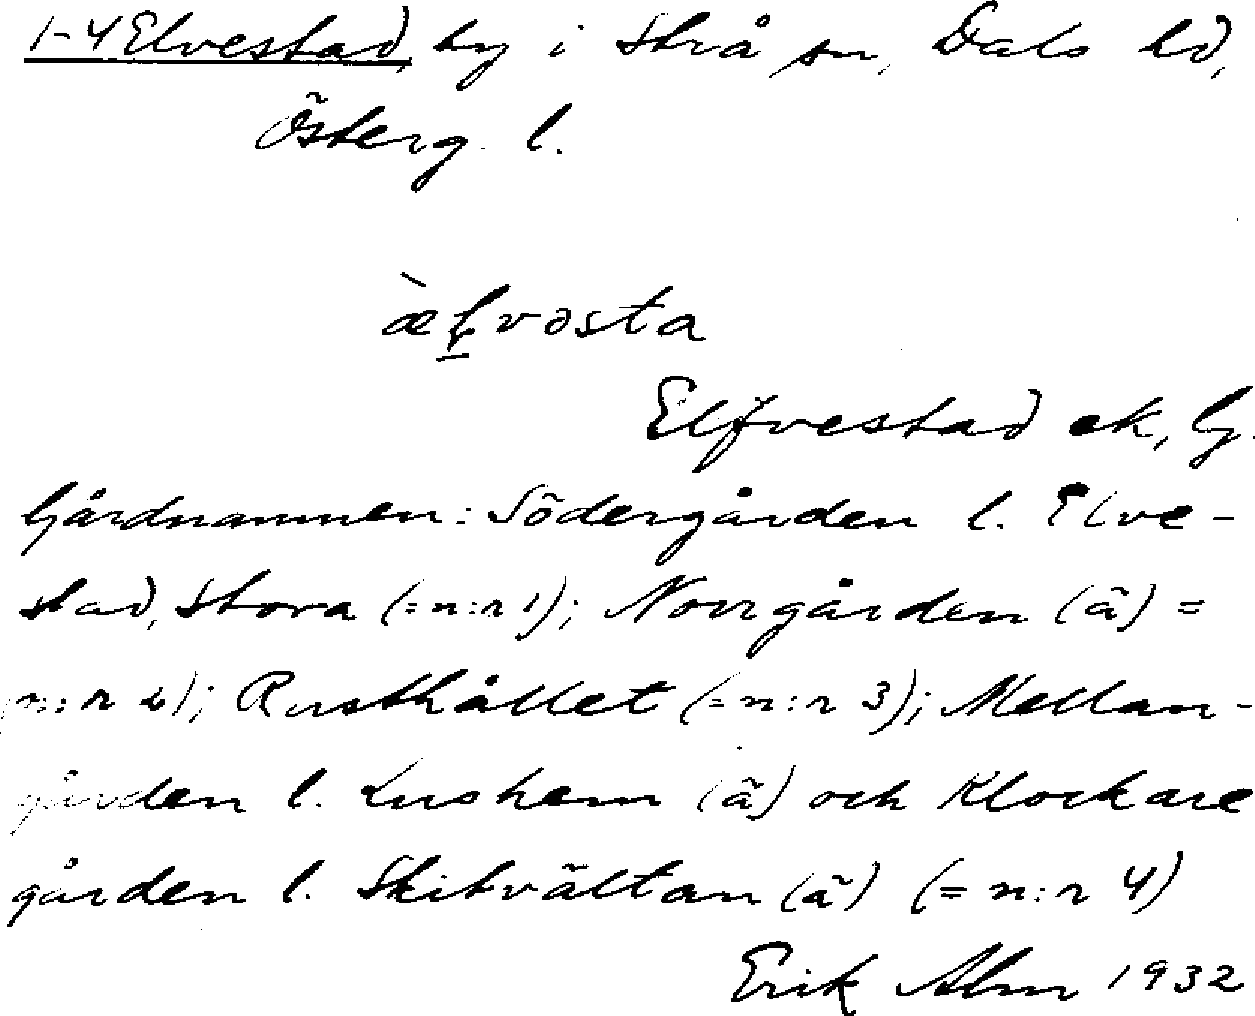 1-4 Elvestad, by i Strå sn, Dals hd,
Österg. l.
Elfvestad ek, Gj.
Gårdnamnen: Södergården l. Elve-
stad, Stora (=n:r 1); Norrgården (ä) =
n:r 2); Rusthållet (=n:r 3); Mellan-
gården l. Lushem (ä) och Klockare
gården l. Skitvältan (ä) (= n:r 4)
Erik Alm 1932